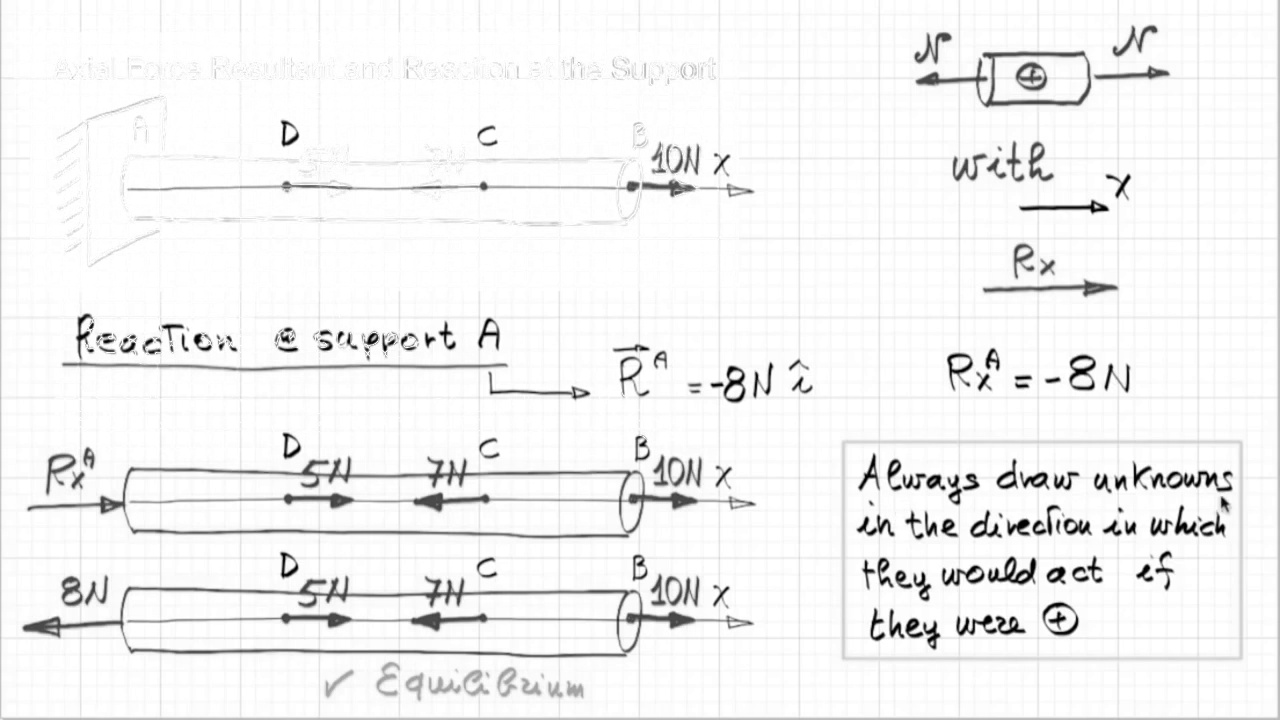 Axial Force Resultant and Reaction at the Support
N N
A D C B
5N 7N 10N x
with
x
Rx
Reaction @ support A
R^A = -8N î
Rx^A = -8N
D C B
Rx^A 5N 7N 10N x
D C B
8N 5N 7N 10N x
✓ Equilibrium
Always draw unknowns
in the direction in which
they would act if
they were ⊕